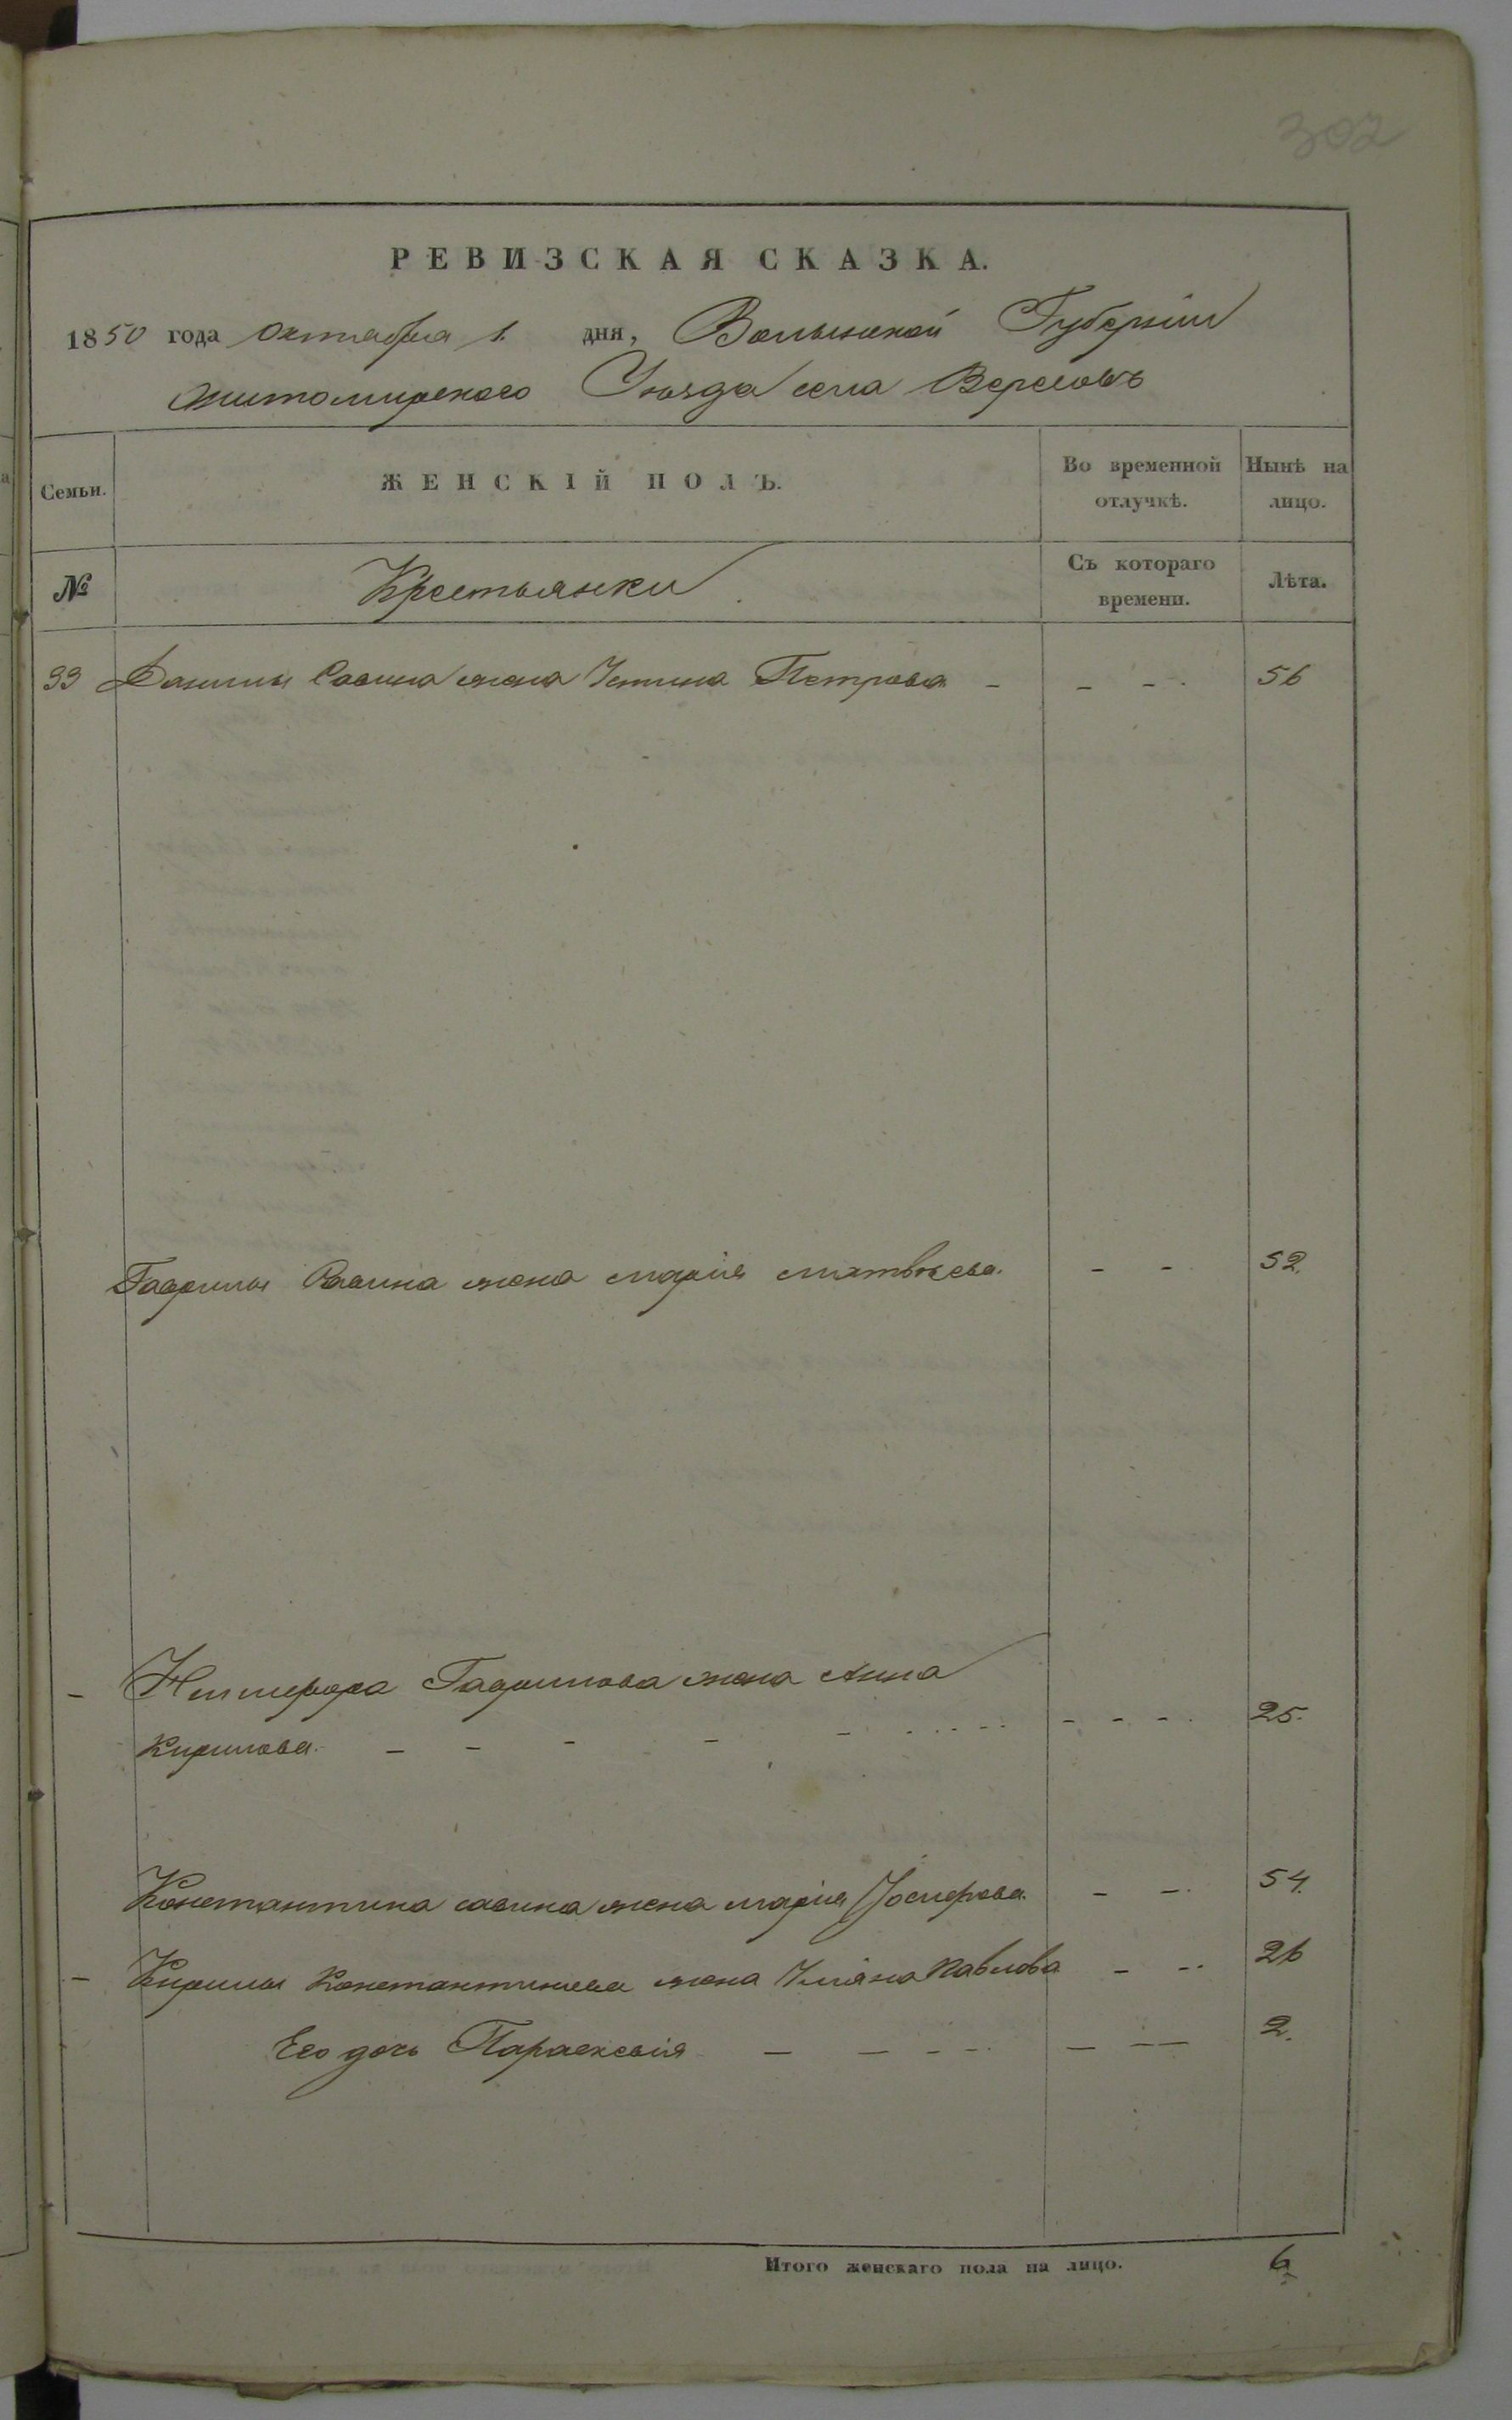 302
РЕВИЗСКАЯ СКАЗКА.
1850 года Октября 1. дня, Волынской Губернiи
Житомирского Уѣзда села Вересовъ
Семьи.
ЖЕНСКIЙ ПОЛЪ.
Во временной отлучкѣ.
Нынѣ на лицо.
№
Крестьянки
Съ котораго времени.
Лѣта.
33 Данилы Савина жена Устина Петрова - - - . 56
Гаврилы Савина жена Марiя Матвѣева. - - 52.
- Никифора Гаврилова жена Анна
Кирилова. - - - - - - - - 25.
Константина Савина жена Марiя Iосифова. - -. 54.
- Кирилы Константинова жена Улiяна Павлова - -. 26
Его дочь Параскевiя - - - - - - - 2.
Итого женскаго пола на лицо. 6